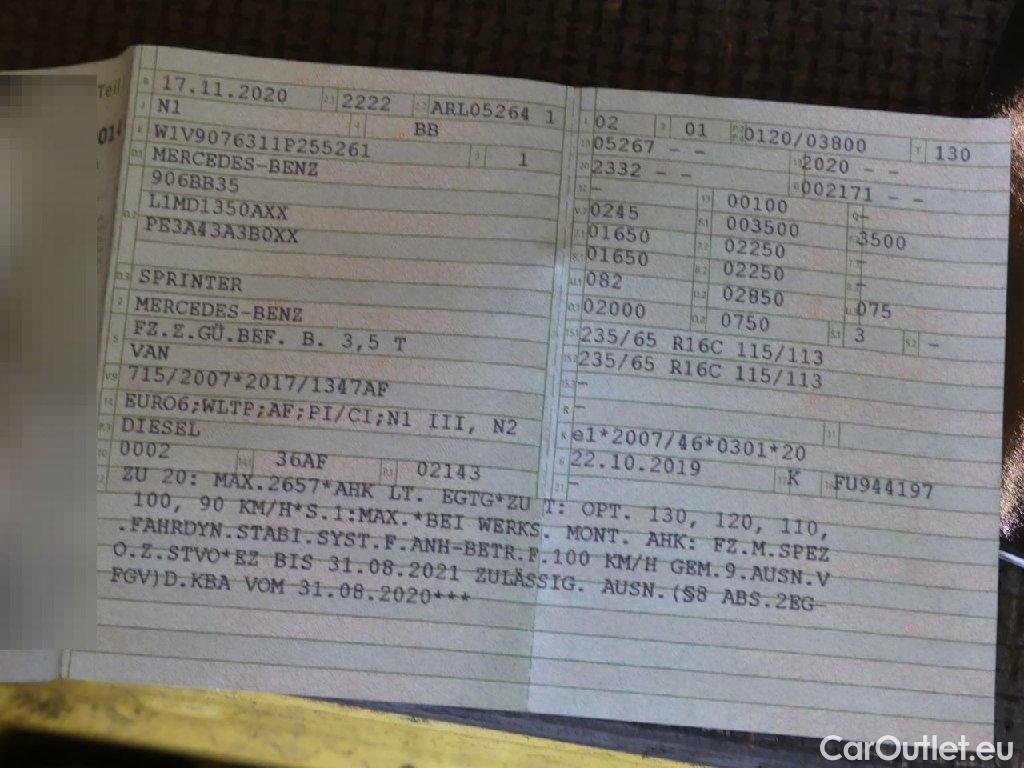 Teil
B 17.11.2020 2.1 2222 2.2 ARL05264 1
J N1 4 BB
E W1V9076311P255261 3 1
D.1 MERCEDES-BENZ
906BB35
D.2 L1MD1350AXX
PE3A43A3B0XX
D.3 SPRINTER
2 MERCEDES-BENZ
5 FZ.Z.GÜ.BEF. B. 3,5 T
VAN
V.9 715/2007*2017/1347AF
14 EURO6;WLTP;AF;PI/CI;N1 III, N2
P.3 DIESEL
10 0002 14.1 36AF P.1 02143
L 02 9 01 P.2 P.4 0120/03800 T 130
18 05267 - - 19 2020 - -
20 2332 - - G 002171 - -
12 - 13 00100 Q -
V.7 0245 F.1 003500 F.2 3500
7.1 01650 7.2 02250 7.3 -
8.1 01650 8.2 02250 8.3 -
U.1 082 U.2 02850 U.3 075
O.1 02000 O.2 0750 S.1 3 S.2 -
15.1 235/65 R16C 115/113
15.2 235/65 R16C 115/113
15.3 -
R - 11
K e1*2007/46*0301*20
6 22.10.2019 17 K 16 FU944197
21 -
22 ZU 20: MAX.2657*AHK LT. EGTG*ZU T: OPT. 130, 120, 110,
100, 90 KM/H*S.1:MAX.*BEI WERKS. MONT. AHK: FZ.M.SPEZ
.FAHRDYN.STABI.SYST.F.ANH-BETR.F.100 KM/H GEM.9.AUSN.V
O.Z.STVO*EZ BIS 31.08.2021 ZULÄSSIG. AUSN.(§8 ABS.2EG-
FGV)D.KBA VOM 31.08.2020***
CarOutlet.eu